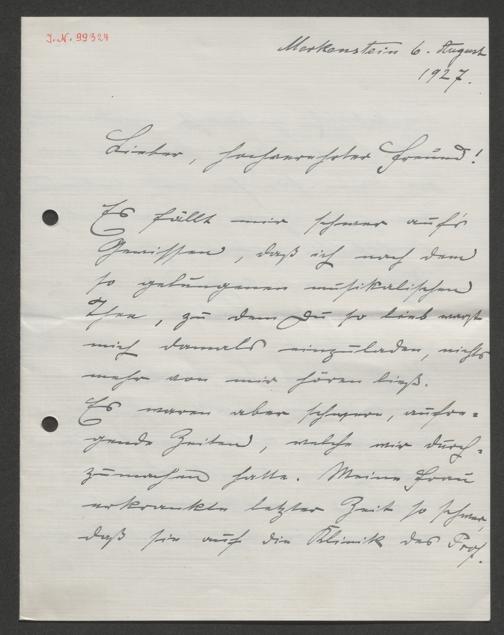 J. N. 99324
Merkenstein 6. August
1927.
Lieber, hochverehrter Freund!
Es fällt mir schwer auf's
Gewissen, daß ich nach dem
so gelungenen musikalischen
Thee, zu dem Du so lieb warst
mich damals einzuladen, nichts
mehr von mir hören ließ.
Es waren aber schwere, aufre-
gende Zeiten, welche wir durch-
zumachen hatte. Meine Frau
erkrankte letzter Zeit so schwer,
daß sie auf die Klinik des Prof.